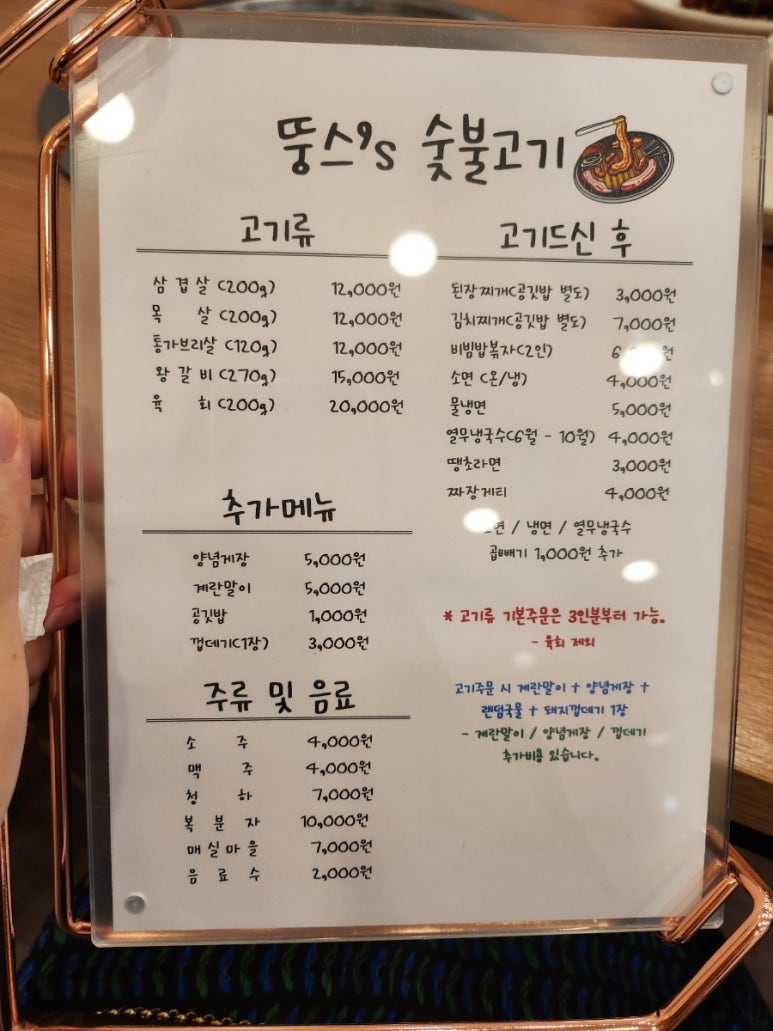 뚱스's 숯불고기
고기류
삼겹살 (200g) 12,000원
목 살 (200g) 12,000원
통가브리살 (120g) 12,000원
왕갈비 (270g) 15,000원
육 회 (200g) 20,000원
추가메뉴
양념게장 5,000원
계란말이 5,000원
공깃밥 1,000원
껍데기(1장) 3,000원
주류 및 음료
소 주 4,000원
맥 주 4,000원
청 하 7,000원
복 분 자 10,000원
매실마을 7,000원
음 료 수 2,000원
고기드신 후
된장찌개(공깃밥 별도) 3,000원
김치찌개(공깃밥 별도) 7,000원
비빔밥볶자(2인)
소면 (온/냉) 4,000원
물냉면 5,000원
열무냉국수(6월 - 10월) 4,000원
땡초라면 3,000원
짜장게티 4,000원
/ 냉면 / 열무냉국수
곱빼기 1,000원 추가
* 고기류 기본주문은 3인분부터 가능.
- 육회 제외
고기주문 시 계란말이 + 양념게장 +
랜덤국물 + 돼지껍데기 1장
- 계란말이 / 양념게장 / 껍데기
추가비용 있습니다.